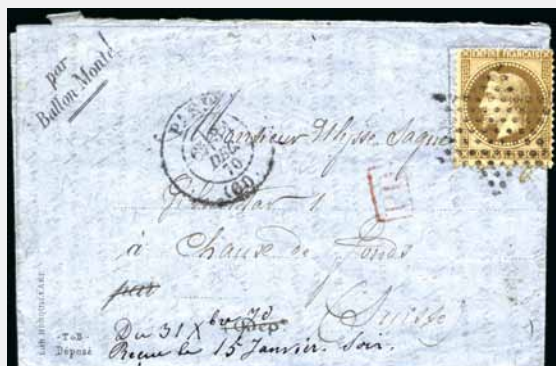 par
Ballon Monté
EMPIRE FRANÇAIS
PARIS
DEC.
70
(60)
Monsieur Ulysse Sague
PD
Gibraltar 1
à Chaux de Fonds
(Suisse)
Du 31 Xbre 70
Reçue le 15 Janvier. Soir.
Déposé